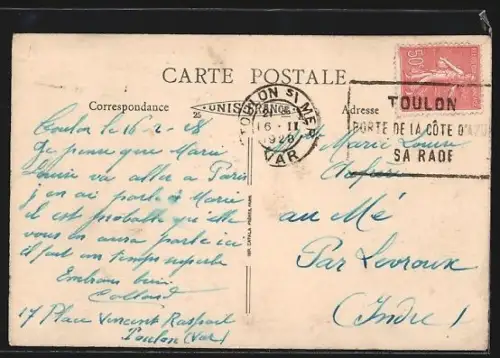 CARTE POSTALE
Correspondance
Adresse
25 UNIS FRANCE
TOULON S/ MER
16 - II
1928
VAR
TOULON
PORTE DE LA CÔTE D'AZUR
SA RADE
50c
Toulon le 16-2-28
Je pense que Marie
Louise va aller a Paris
j'en ai parlé à Marie
il est probable qu'elle
vous en aura parlé ici
il fait un temps superbe
Embrasse bien
17 Place Vincent Raspail
Toulon (Var)
Marie Louise
au Mé
Par Levroux
(Indre)